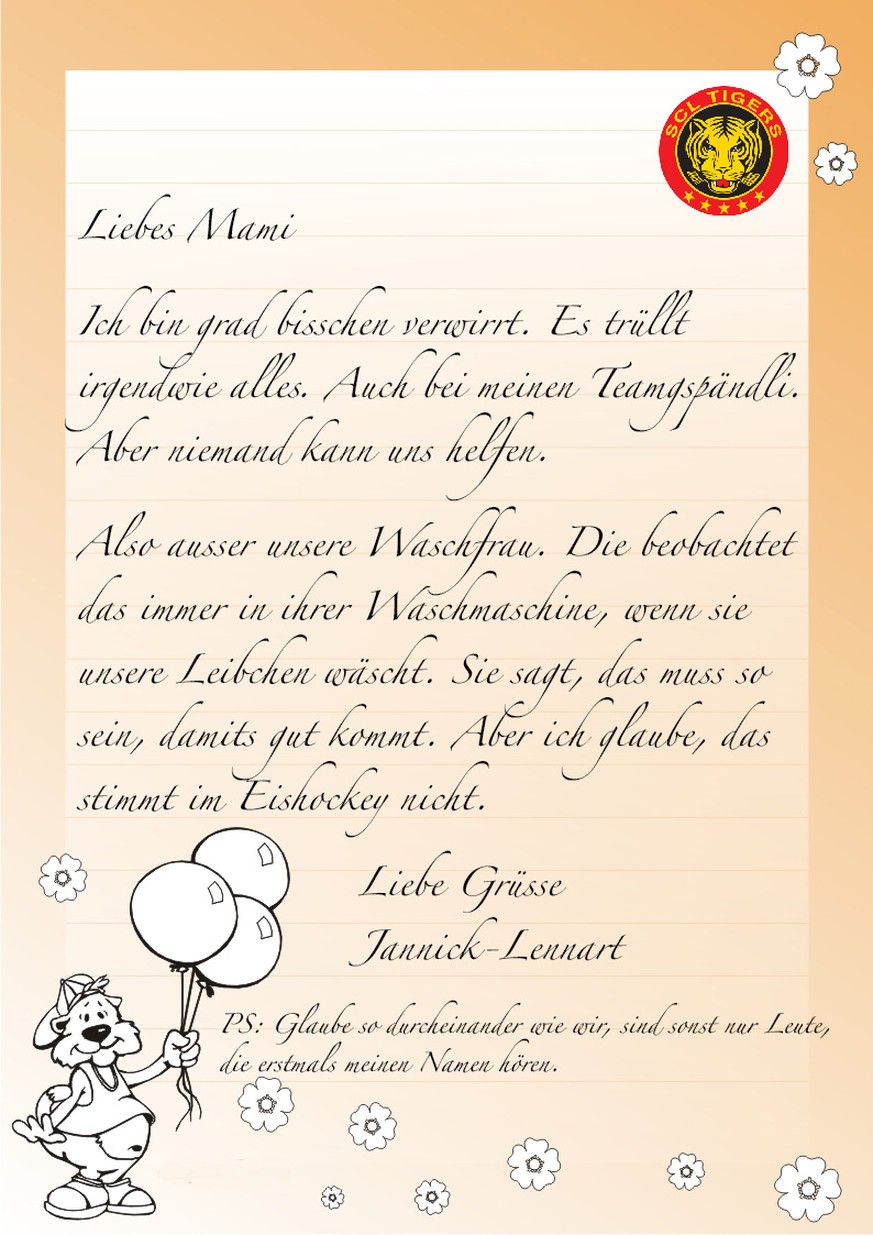 SCL TIGERS
Liebes Mami
Ich bin grad bisschen verwirrt. Es trüllt
irgendwie alles. Auch bei meinen Teamgspändli.
Aber niemand kann uns helfen.
Also ausser unsere Waschfrau. Die beobachtet
das immer in ihrer Waschmaschine, wenn sie
unsere Leibchen wäscht. Sie sagt, das muss so
sein, damits gut kommt. Aber ich glaube, das
stimmt im Eishockey nicht.
Liebe Grüsse
Jannick-Lennart
PS: Glaube so durcheinander wie wir, sind sonst nur Leute,
die erstmals meinen Namen hören.